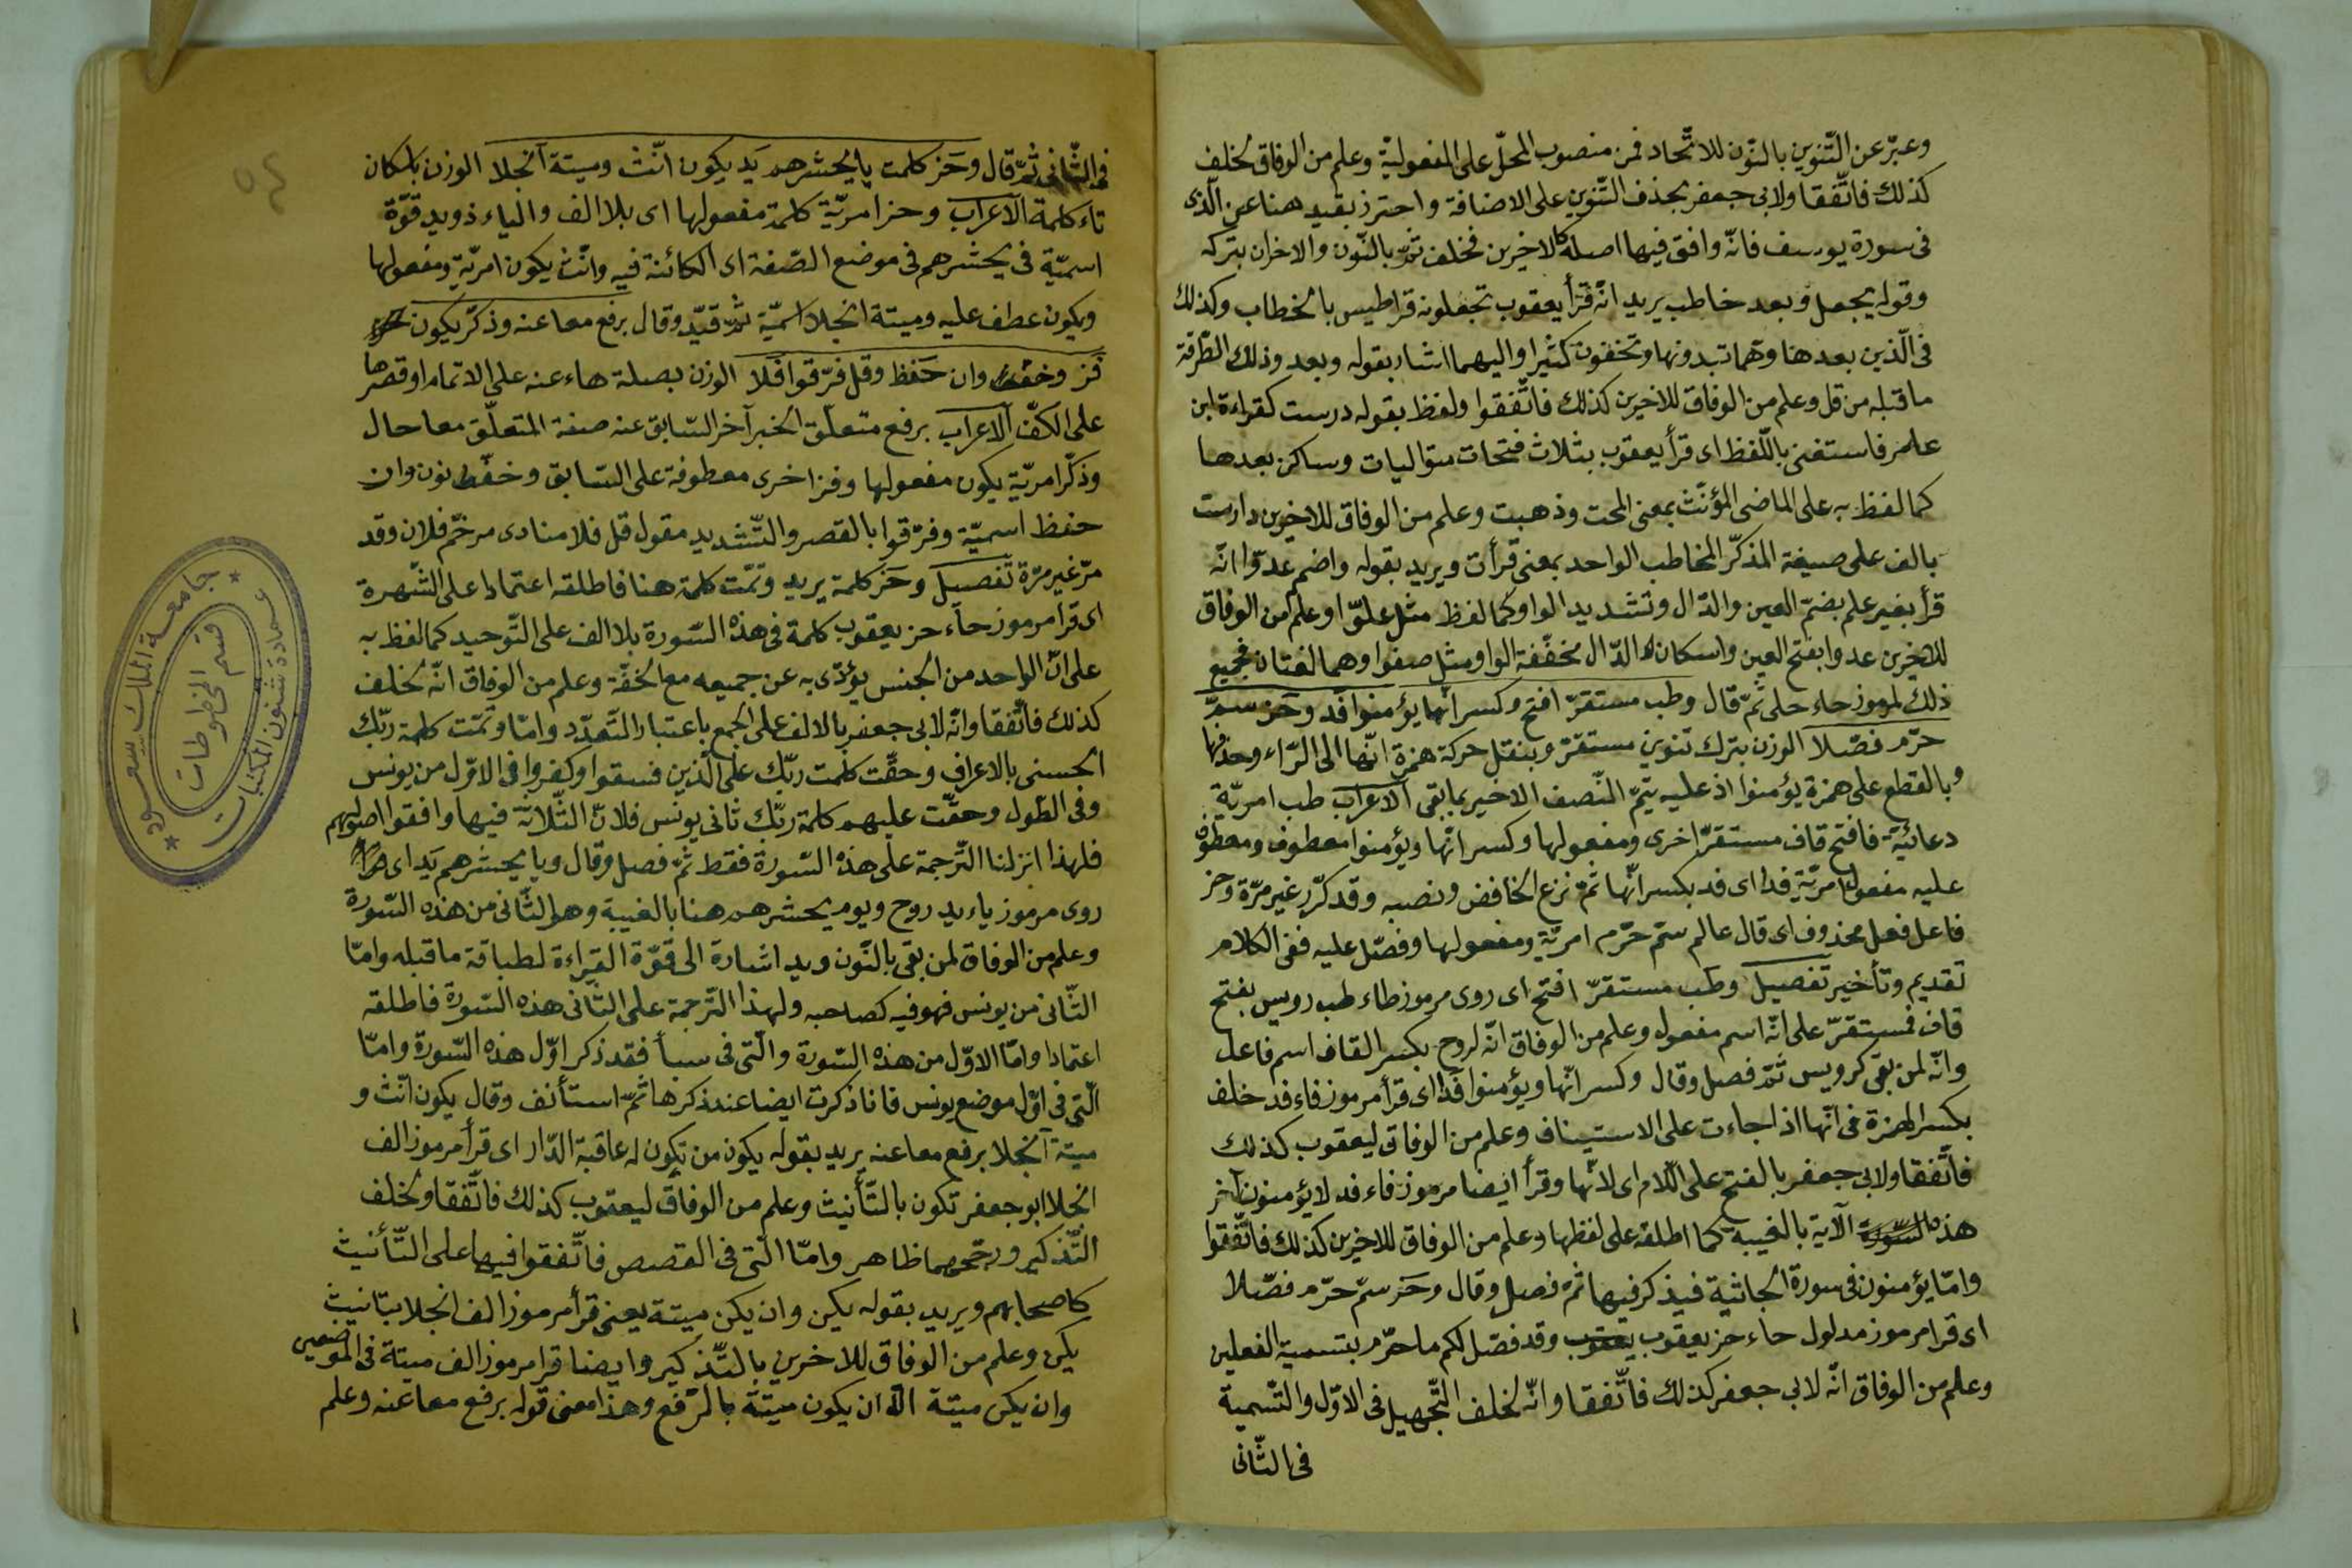 وعبّر عن التّنوين بالنّون للاتّحاد فمن منصوب المحلّ على المفعوليّة وعلم من الوفاق لخلف
كذلك فاتّفقا ولابى جعفر بحذف التّنوين على الاضافة واحترز بقيد هنا عن الّذى
فى سورة يوسف فانّه وافق فيها اصله كالاخيرين فخلف ثمّ بالنّون والاخران بتركه
وقوله يجعل وبعد خاطب يريد انّه قرأ يعقوب تجعلونه قراطيس بالخطاب وكذلك
فى الّذين بعد هنا وهما تبدونها وتخفون كثيرا واليهما اشار بقوله وبعد وذلك الطّرفة
ما قبله من قل وعلم من الوفاق للاخرين كذلك فاتّفقوا ولفظ بقوله درست كقراءة ابن
علمر فاستغنى باللّفظ اى قرأ يعقوب بثلاث فتحات متواليات وساكن بعدها
كما لفظ به على الماضى المؤنّث بمعنى امحت وذهبت وعلم من الوفاق للاخرين دارست
بالف على صيغة المذكّر المخاطب الواحد بمعنى قرأت ويريد بقوله واضم عدوّا انّه
قرأ بغير علم بضمّ العين والدّال وتشديد الواو كما لفظ مثل علوّا وعلم من الوفاق
للاخرين عدوا بفتح العين واسكان الدّال مخفّفة الواو مثل صفوا وهما لغتان فجميع
ذلك لمرموز حاء حلى ثمّ قال وطب مستقرّ افتح وكسر انّها يؤمنوا فد وحز سمّ
حرّم فصّلا الوزن بترك تنوين مستقرّ وبنقل حركة همزة انّها الى الرّاء وحذفها
وبالقطع على همزة يؤمنوا اذ عليه يتمّ النّصف الاخير بما بقى الاعراب طب امريّة
دعائيّة فافتح قاف مستقرّ اخرى ومفعولها وكسر انّها ويؤمنوا معطوف ومعطوف
عليه مفعولا امريّة فدا اى فد بكسر انّها ثمّ نزع الخافض ونصبه وقد كرّر غير مرّة وحز
فاعل فعل محذوف اى قال عالم سمّ حرّم امريّة ومفعولها وفصّل عليه ففى الكلام
تقديم وتأخير تفصيل وطب مستقرّ افتح اى روى مرموز طاء طب رويس بفتح
قاف فمستقرّ على انّه اسم مفعول وعلم من الوفاق انّه لروح بكسر القاف اسم فاعل
وانّه لمن بقى كرويس ثمّ فصل وقال وكسر انّها ويؤمنوا فدا اى قرأ مرموز فاء فد خلف
بكسر الهمزة فى انّها اذا جاءت على الاستيناف وعلم من الوفاق ليعقوب كذلك
فاتّفقا ولابى جعفر بالفتح على اللّام اى لانّها وقرأ ايضا مرموز فاء فد لا يؤمنون آخر
هذه السّورة الآية بالغيبة كما اطلقه على لفظها وعلم من الوفاق للاخرين كذلك فاتّفقوا
وامّا يؤمنون فى سورة الجاثية فيذكر فيها ثمّ فصل وقال وحز سمّ حرّم فصّلا
اى قرا مرموز مدلول حاء حز يعقوب يعقوب وقد فصّل لكم ما حرّم بتسمية الفعلين
وعلم من الوفاق انّه لابى جعفر كذلك فاتّفقا وانّه لخلف التّجهيل فى الاوّل والتّسمية
فى الثّانى
فى الثّانى ثمّ قال وحز كلمت يا يحشرهم يد يكون انّث وميتة انجلا الوزن باسكان
تاء كلمة الاعراب وحز امريّة كلمة مفعولها اى بلا الف والياء ذو يد قوّة
اسميّة فى يحشرهم فى موضع الصّفة اى الكائنة فيه وانّث يكون امريّة ومفعولها
ويكون عطف عليه وميتة انجلا اسميّة ثمّ قيّد وقال برفع معا عنه وذكّر يكون
فز وخف وان حفظ وقل فرّقوا فلا الوزن بصلة هاء عنه على الاتمام او قصرها
على الكفّ الاعراب برفع متعلّق الخبر آخر السّابق عنه صفة المتعلّق معا حال
وذكّر امريّة يكون مفعولها وفز اخرى معطوفة على السّابق وخفّ نون وان
حفظ اسميّة وفرّقوا بالقصر والتّشديد مقول قل فلا منادى مرخّم فلان وقد
مرّ غير مرّة تفصيل وحز كلمة يريد وتمّت كلمة هنا فاطلقه اعتمادا على الشّهرة
اى قرا مرموز حاء حز يعقوب كلمة فى هذه السّورة بلا الف على التّوحيد كما لفظ به
على انّ الواحد من الجنس يؤدّى به عن جميعه مع الخفّة وعلم من الوفاق انّه لخلف
كذلك فاتّفقا وانّه لابى جعفر بالالف على الجمع باعتبار التّعدّد وامّا وتمّت كلمة ربّك
الحسنى بالاعراف وحقّت كلمت ربّك على الّذين فسقوا وكفروا فى الاوّل من يونس
وفى الطّول وحقّت عليهم كلمة ربّك ثانى يونس فلانّ الثّلاثة فيها وافقوا اصولهم
فلهذا انزلنا التّرجمة على هذه السّورة فقط ثمّ فصل وقال ويا يحشرهم يد اى
روى مرموز ياء يد روح ويوم يحشرهم هنا بالغيبة وهو الثّانى من هذه السّورة
وعلم من الوفاق لمن بقى بالنّون ويد اشارة الى قوّة القراءة لطباقة ما قبله وامّا
الثّانى من يونس فهو فيه كصاحبه ولهذا التّرجمة على الثّانى هذه السّورة فاطلقه
اعتمادا وامّا الاوّل من هذه السّورة والّتى فى سبأ فقد ذكر اوّل هذه السّورة وامّا
الّتى فى اوّل موضع يونس فانا ذكرت ايضا عند ذكرها ثمّ استأنف وقال يكون انّث و
ميتة انجلا برفع معا عنه يريد بقوله يكون من تكون له عاقبة الدّار اى قرأ مرموز الف
انجلا ابو جعفر تكون بالتّأنيث وعلم من الوفاق ليعقوب كذلك فاتّفقا ولخلف
التّذكير ووجههما ظاهر وامّا الّتى فى القصص فاتّفقوا فيها على التّأنيث
كاصحابهم ويريد بقوله يكن وان يكن ميتة يعنى قرأ مرموز الف انجلا بتانيث
يكن وعلم من الوفاق للاخرين بالتّذكير وايضا قرا مرموز الف ميتة فى الموضعين
وان يكن ميتة الّا ان يكون ميتة بالرّفع وهذا معنى قوله برفع معا عنه وعلم
جامعة الملك سعود
عمادة شئون المكتبات
قسم المخطوطات